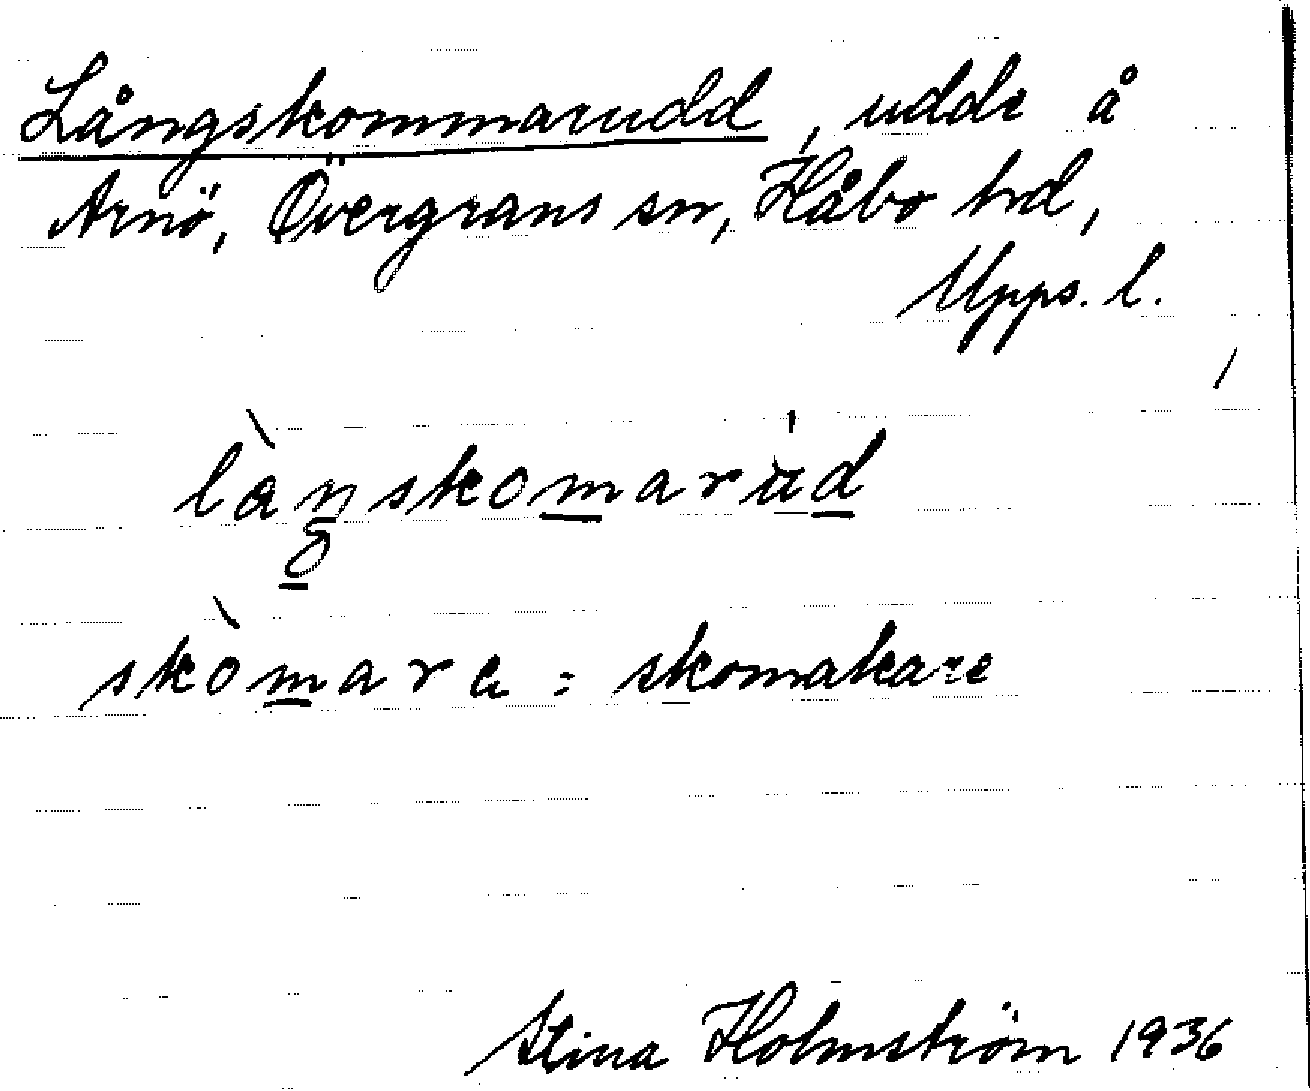 Långskommarudd, udde å
Arnö, Övergrans sn, Håbo hd,
Upps. l.
làŋskomarúd
skòmara = skomakare
Stina Holmström 1936